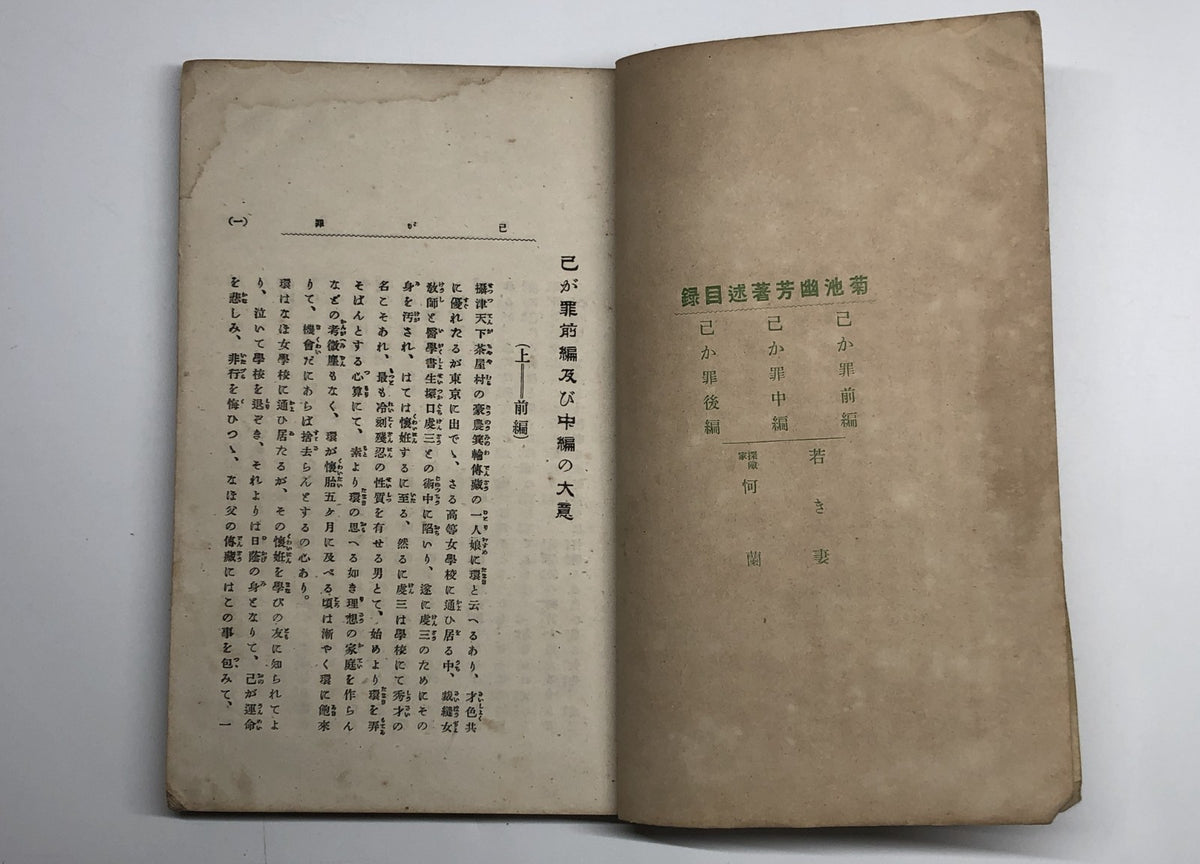 菊池幽芳著述目録
己か罪前編
己か罪中編
己か罪後編
若き妻
探險家
何蘭
己が罪
(一)
己が罪前編及び中編の大意
(上――前編)
攝津天下茶屋村の豪農箕輪傳藏の一人娘に環と云へるあり、才色共
に優れたるが東京に出でゝ、さる高等女學校に通ひ居る中、裁縫女
教師と醫學書生塚口虔三との術中に陷いり、遂に虔三のためにその
身を汚され、はては懷姙するに至る、然るに虔三は學校にて秀才の
名こそあれ、最も冷刻殘忍の性質を有せる男とて、始めより環を弄
そばんとする心算にて、素より環の思へる如き理想の家庭を作らん
などの考微塵もなく、環が懷胎五ケ月に及べる頃は漸やく環に飽來
りて、機會だにあらば捨去らんとするの心あり。
環はなほ女學校に通ひ居たるが、その懷姙を學びの友に知られてよ
り、泣いて學校を退ぞき、それよりは日蔭の身となりて、己が運命
を悲しみ、非行を悔ひつゝ、なほ父の傳藏にはこの事を包みて、一